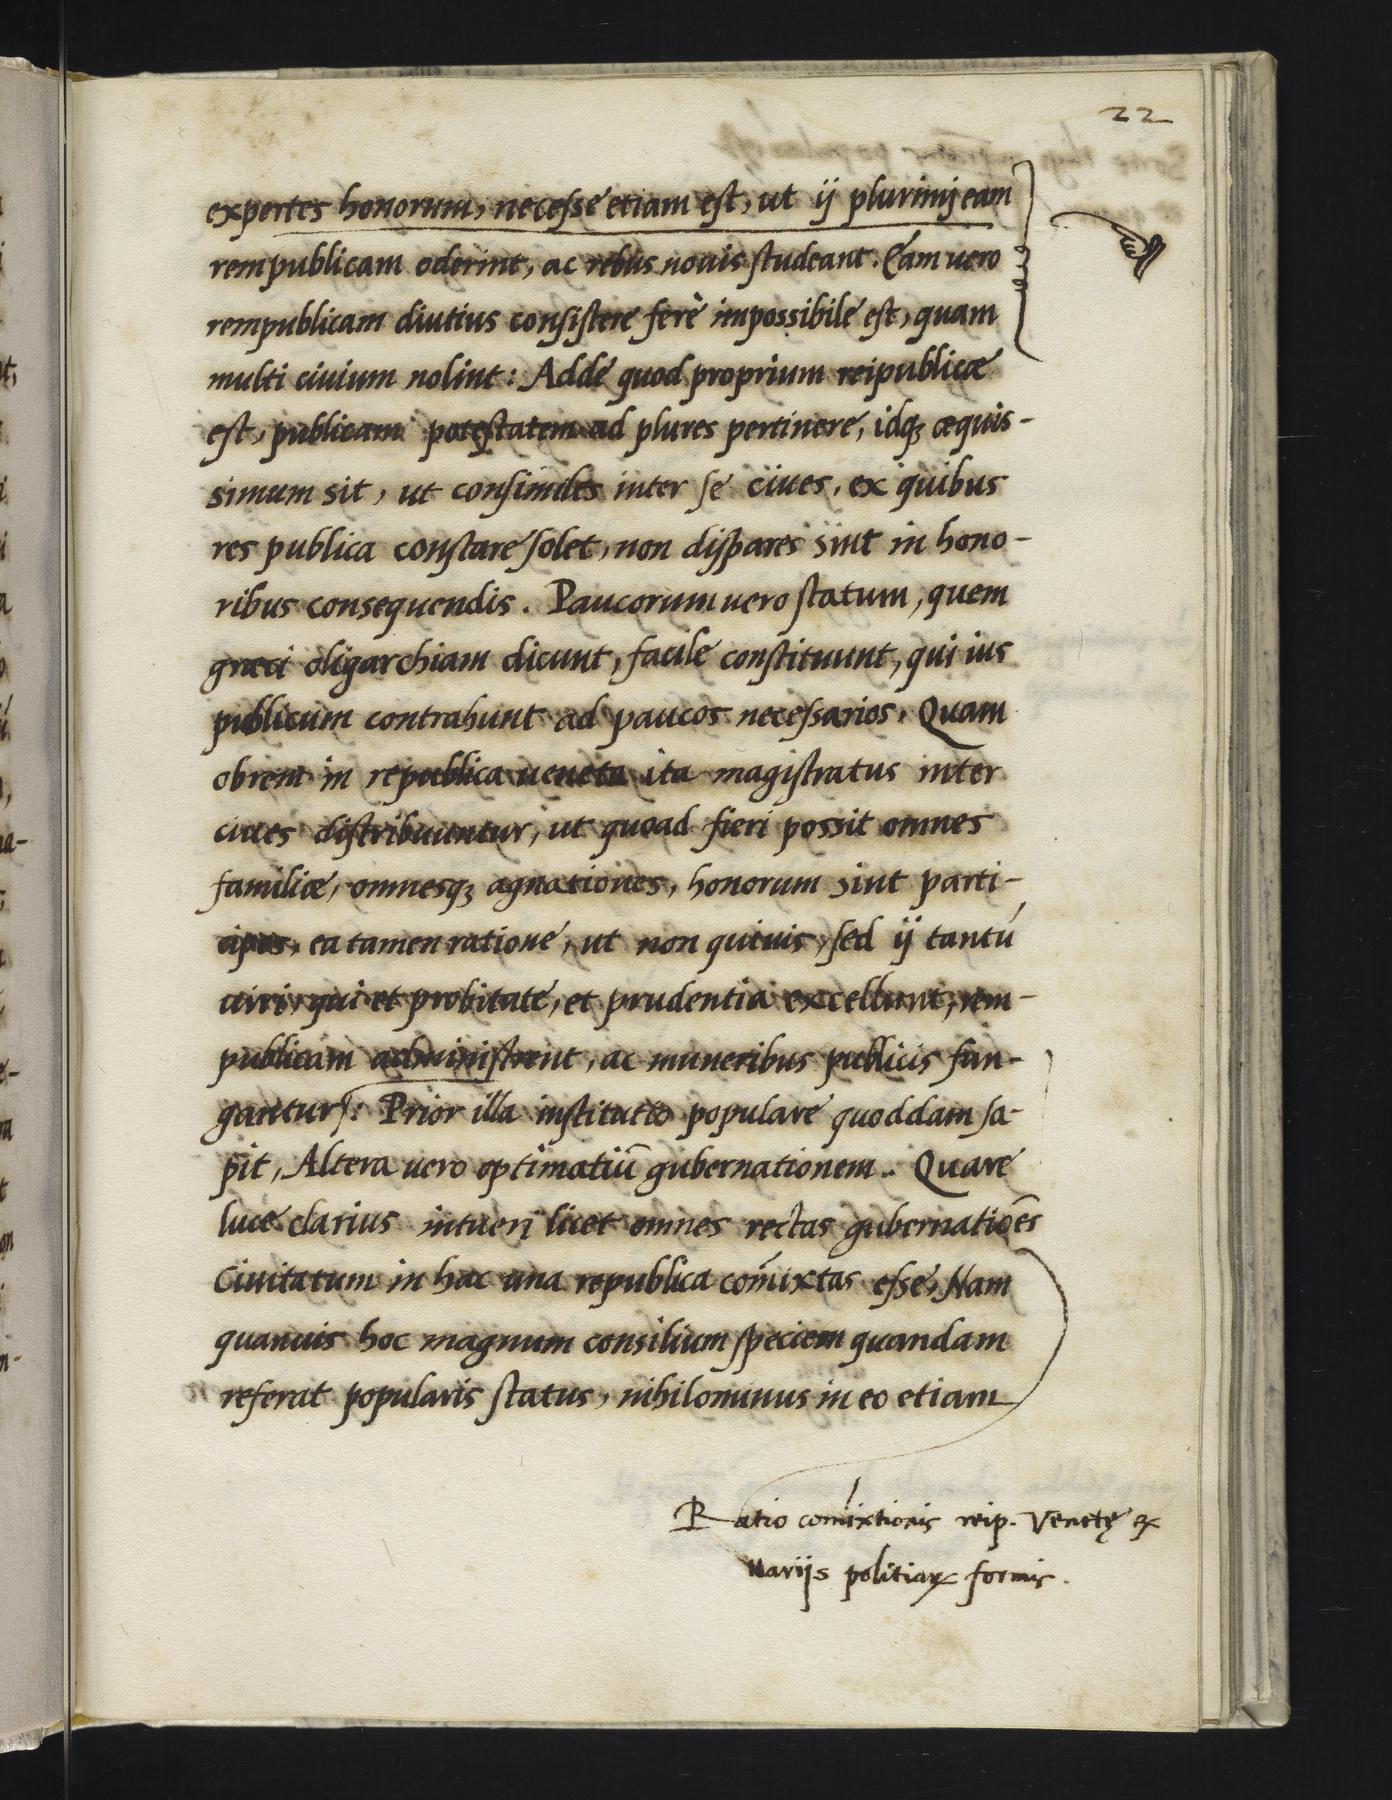 22
expertes honorum, necesse etiam est, ut ij plurimi eam
rempublicam oderint, ac rebus nouis studeant. Eam uero
rempublicam diutius consistere ferè impossibile est, quam
multi ciuium nolint: Adde quod proprium reipublicæ
est, publicam potestatem ad plures pertinere, idq; æquis-
simum sit, ut consimiles inter se ciues, ex quibus
res publica constare solet, non dispares sint in hono-
ribus consequendis. Paucorum uero statum, quem
græci oligarchiam dicunt, facile constituunt, qui ius
publicum contrahunt ad paucos necessarios. Quam
obrem in republica ueneta ita magistratus inter
ciues distribuuntur, ut quoad fieri possit omnes
familiæ, omnesq; agnationes, honorum sint parti-
cipes, ea tamen ratione, ut non quiuis, sed ij tantú
uiri, qui et probitate, et prudentia excellunt, rem-
publicam administrent, ac muneribus publicis fun-
gantur: Prior illa institutio populare quoddam sa-
pit, Altera uero optimatiū gubernationem. Quare
luce clarius intueri licet omnes rectas gubernatiōes
Ciuitatum in hac una republica cōmixtas esse, Nam
quanuis hoc magnum consilium speciem quandam
referat popularis status, nihilominus in eo etiam
Ratio comixtionis reip. Venetę ex
uarijs politiaꝝ formis.